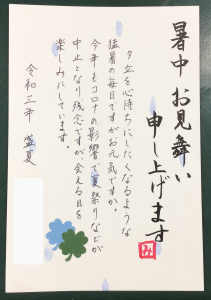 暑中お見舞い
申し上げます
夕立を心待ちにしたくなるような
猛暑の毎日ですがお元気ですか。
今年もコロナの影響で夏祭りなどが
中止となり残念ですが、会える日を
楽しみにしています。
令和三年 盛夏